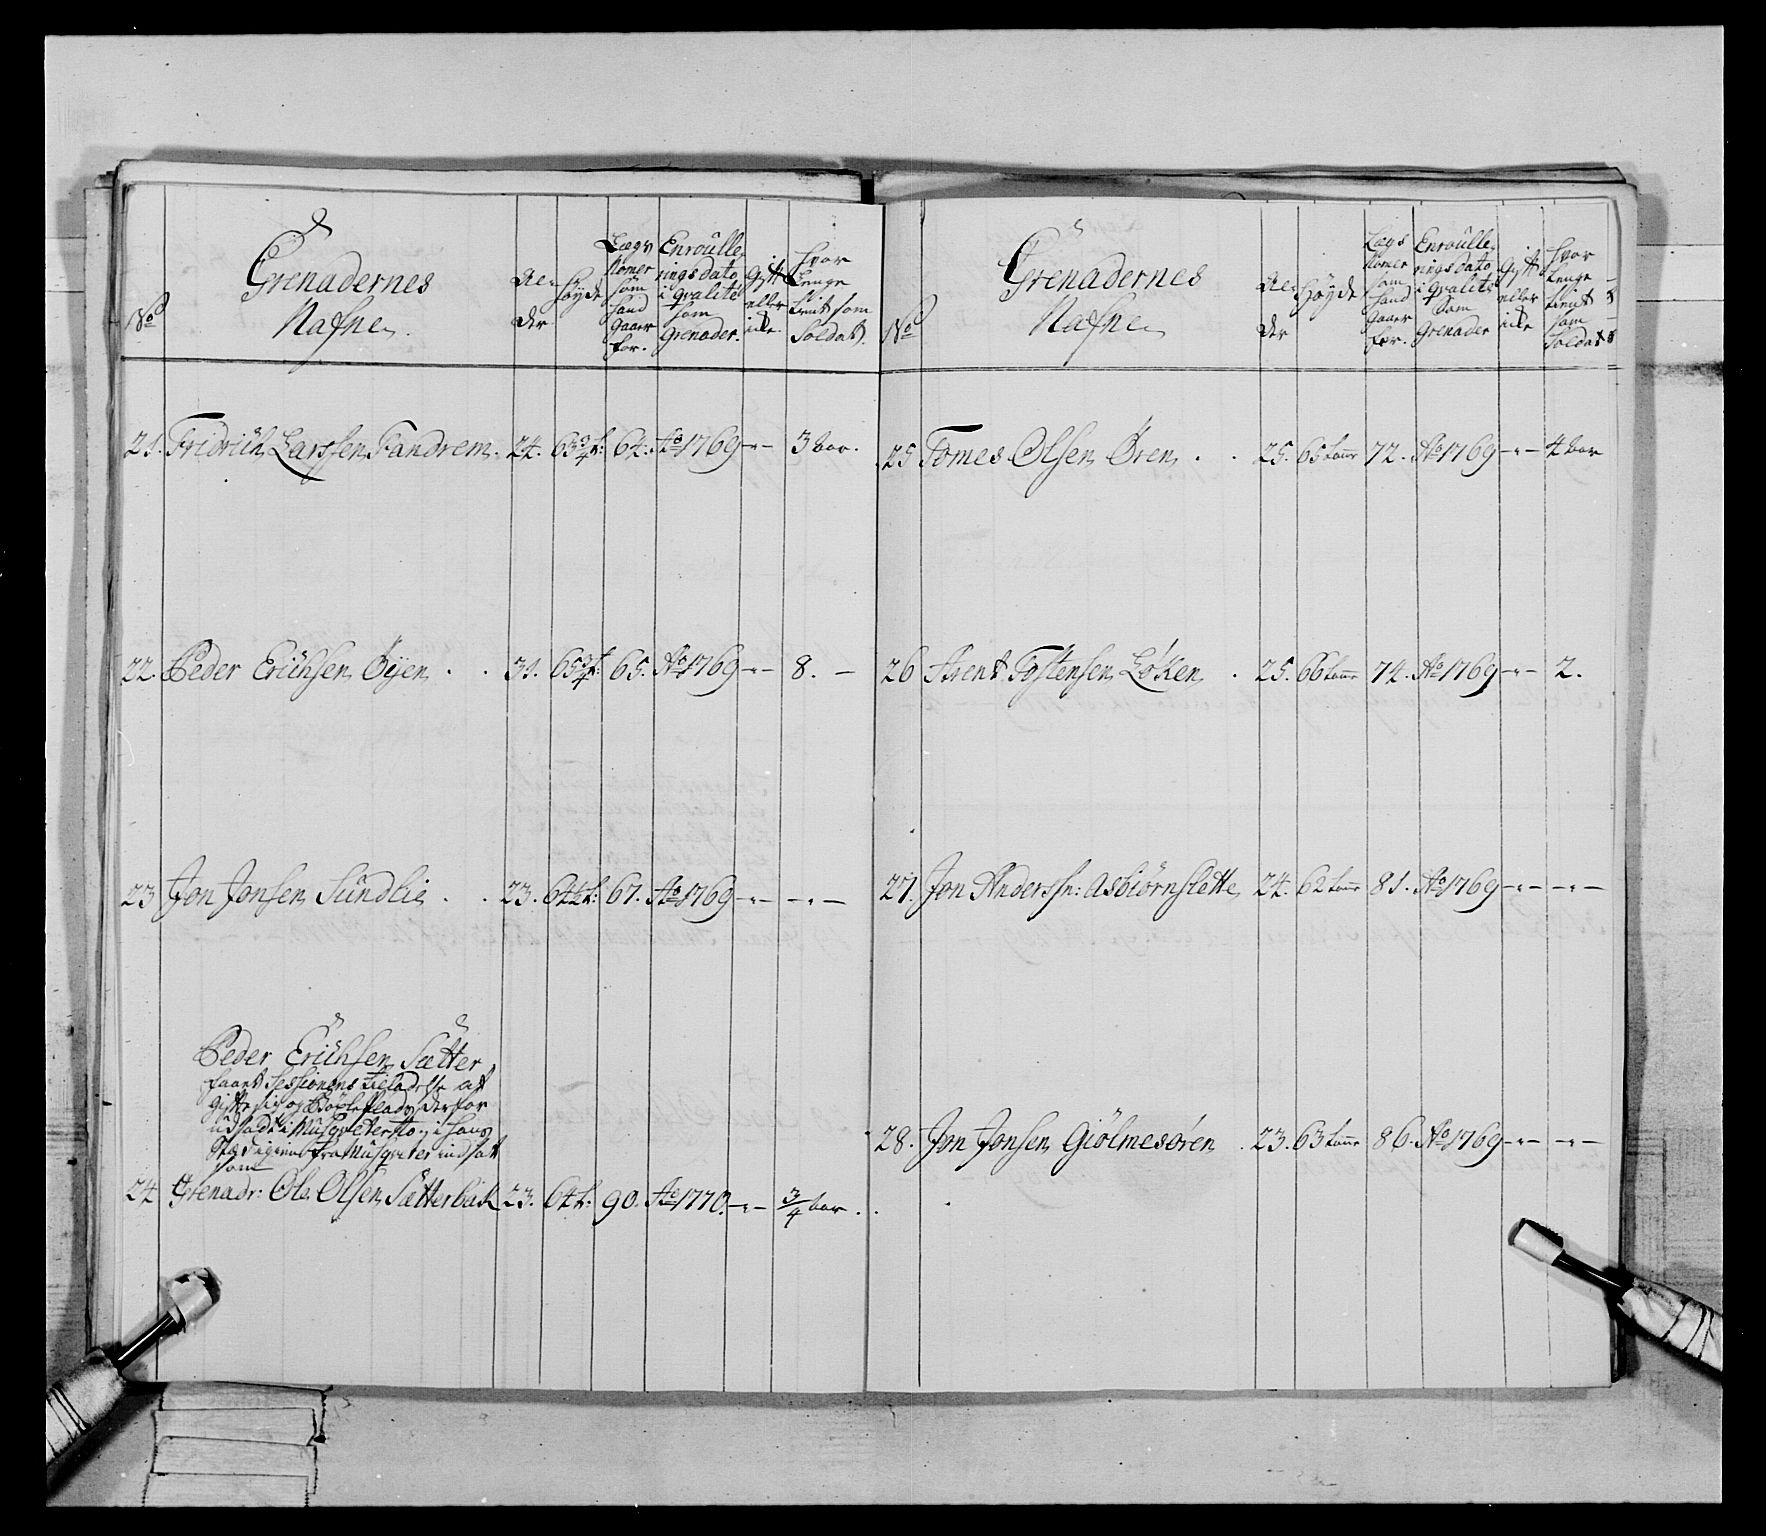 No
Grenadernes
Nafne
Al-
der
Høyde
Lægs
Nomer
som
hand
gaaer
for.
Enroulle,
rings dato
i qvalite
som
Grenader.
Gift
eller
icke
hvor
lenge
tient som
Soldat.
21. Fridrich Larssen Fandrem. 24. 63 3/4 t: 64. Ao 1769 -"- 3 aar.
22. Peder Erichsen Øyen . . 31. 65 3/4 t: 65. Ao 1769 -"- 8. -
23 Jon Jonsen Sundlie . . 23. 64 1/2 t: 67. Ao 1769 -"- -"-
Peder Erichsen Sætter
faaet Sessionens tiladelse at
gifte sig og derfor
udsadt i Musqveter i hans
Sted igien fra Musqveter indsat
som
24 Grenadr: Ole Olsen Sætterbak 23. 64 t: 90. Ao 1770. -"- 3/4 aar.
No
Grenadernes
Nafne
Al-
der
Høyde
Lægs
Nomer
som
hand
gaaer
for.
Enroulle,
rings dato
i qvalite
Som
Grenader
Gift
eller
icke
hvor
lenge
tient
som
Soldat
25 Tomes Olsen Ören . . 25. 65 tomr 72. Ao 1769 -"- 4 aar
26 Arent Tostensen Løken . 25. 66 tomr 74. Ao 1769 -"- 2.
27. Jon Anderssn: Asbiørnslette 24. 62 tomr 81. Ao 1769 -"- -"-
28. Jon Jonsen Giølmesøren . 23. 63 tomr 86. Ao 1769 -"- -"-